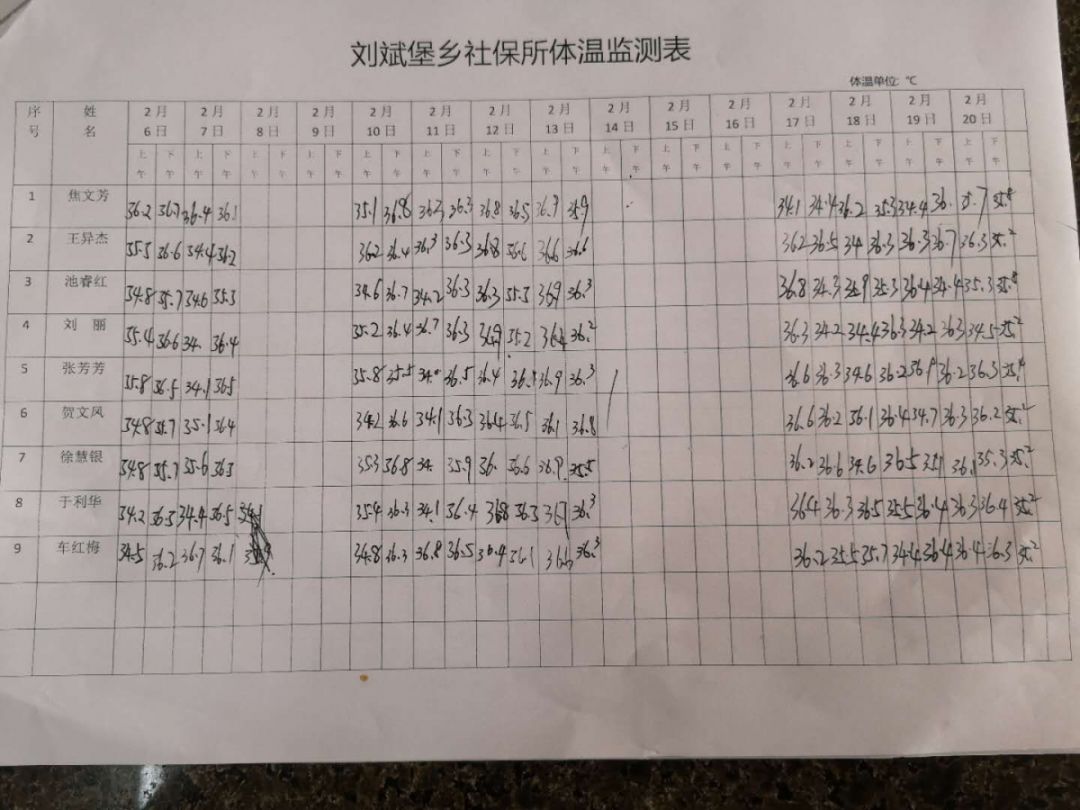 刘斌堡乡社保所体温监测表
体温单位: ℃
序号 姓名 2月6日 2月7日 2月8日 2月9日 2月10日 2月11日 2月12日 2月13日 2月14日 2月15日 2月16日 2月17日 2月18日 2月19日 2月20日
上午 下午 上午 下午 上午 下午 上午 下午 上午 下午 上午 下午 上午 下午 上午 下午 上午 下午 上午 下午 上午 下午 上午 下午 上午 下午 上午 下午 上午 下午
1 焦文芳 36.2 36.7 36.4 36.1 35.1 36.8 36.2 36.3 36.8 36.5 36.9 35.9 34.1 34.4 36.2 35.3 34.4 36. 35.7 35.8
2 王异杰 35.5 36.6 34.4 36.2 36.2 36.4 36.3 36.3 36.8 36.6 36.6 36.6 36.2 36.5 34 36.3 36.3 36.7 36.3 35.2
3 池睿红 34.8 35.7 34.6 35.3 34.6 36.7 34.2 36.3 36.3 35.3 36.9 36.3 36.8 34.3 35.9 35.3 36.4 34.4 35.3 35.4
4 刘丽 35.4 36.6 34. 36.4 35.2 36.4 36.7 36.3 35.9 35.2 36.2 36.3 34.2 34.4 36.3 34.2 36.3 34.5 35.2
5 张芳芳 35.8 36.5 34.1 36.5 35.8 35.5 34. 36.5 36.4 36. 36.9 36.3 36.6 36.3 34.6 36.2 36.9 36.2 36.3 35.4
6 贺文风 34.8 35.7 35.1 36.4 34.2 36.6 34.1 36.3 36.4 36.5 36.1 36.8 36.6 36.2 36.1 36.4 34.7 36.3 36.2 35.2
7 徐慧银 34.8 35.7 35.6 36.3 35.3 36.8 34. 35.9 36. 36.6 36.9 35.5 36.2 36.6 34.6 36.5 35.1 36.1 35.3 35.2
8 于利华 34.2 36.5 34.4 36.5 35.4 36.3 34.1 36.4 36.8 36.3 36.7 36.3 36.4 36.3 36.5 35.5 36.4 36.3 36.4 35.2
9 车红梅 34.5 36.2 36.7 36.1 34.8 36.3 36.8 36.5 36.4 36.1 36.6 36.3 36.2 35.5 35.7 34.4 36.4 36.4 36.3 35.2